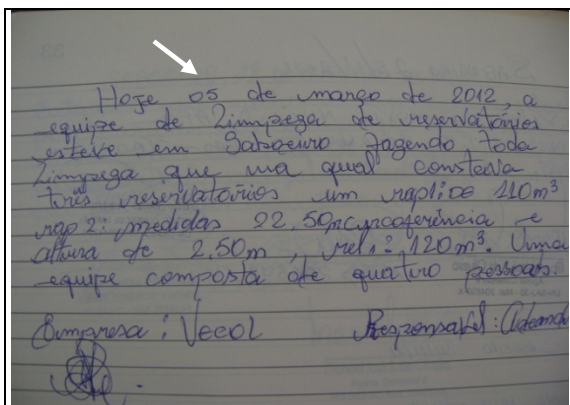 Hoje 05 de março de 2012, a
equipe de Limpeza de reservatórios
esteve em Saboeiro fazendo toda
Limpeza que na qual constava
três reservatórios um rap1: de 110m³
rap 2: medidas 22,50m e
altura de 2,50m, rel1: 120m³. Uma
equipe composta de quatro pessoas.
Empresa: Vecol Responsavel: